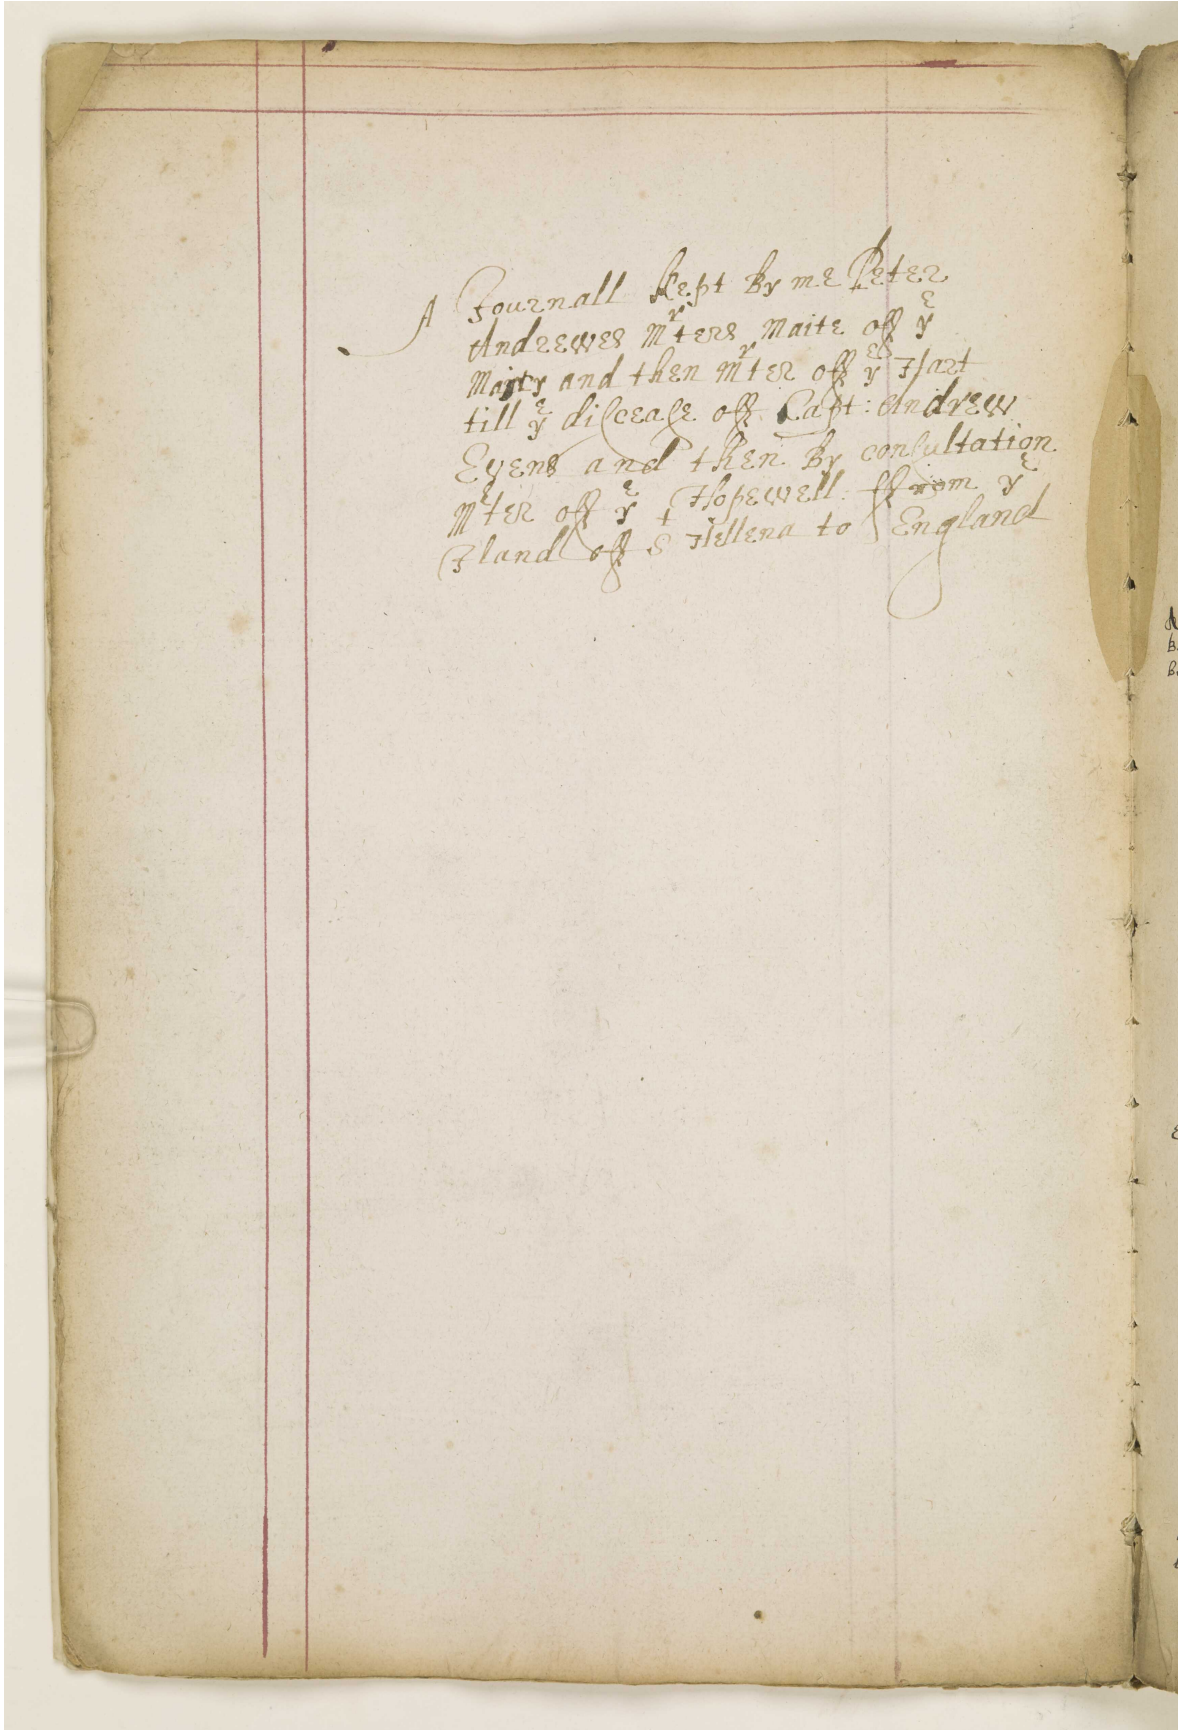 A Journall Kept By me Peter
Andrewes Mrters Maite off ye
Mary and then Mrter off ye Hart
till ye discease off Capt: Andrew
Evens and then By consultation
Mrter off ye Hopewell ffrom ye
Iland off St Hellena to England